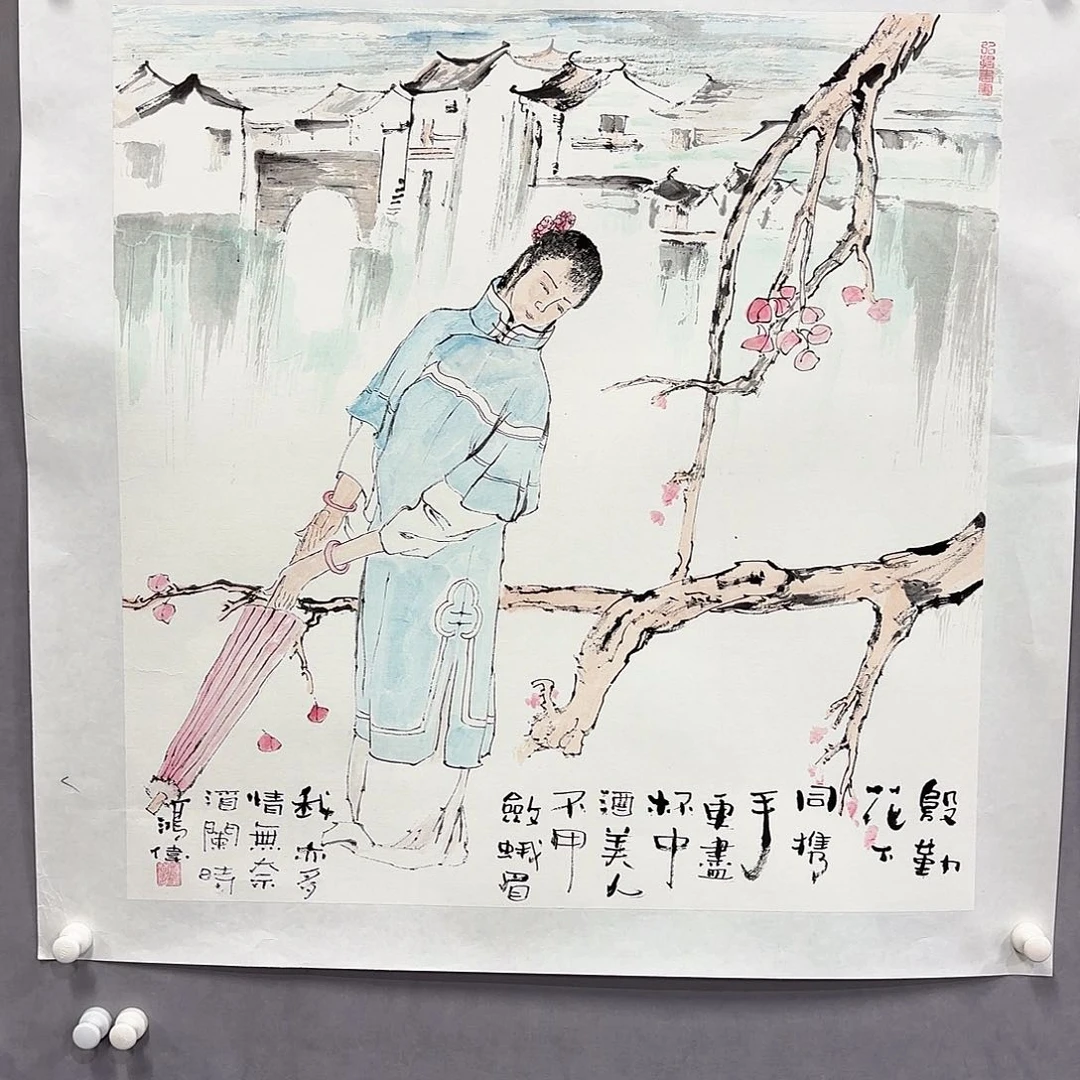 殷勤
花下
同携
手
更盡
杯中
酒美人
不用
斂蛾眉
我亦多
情無奈
酒闌時
鴻偉